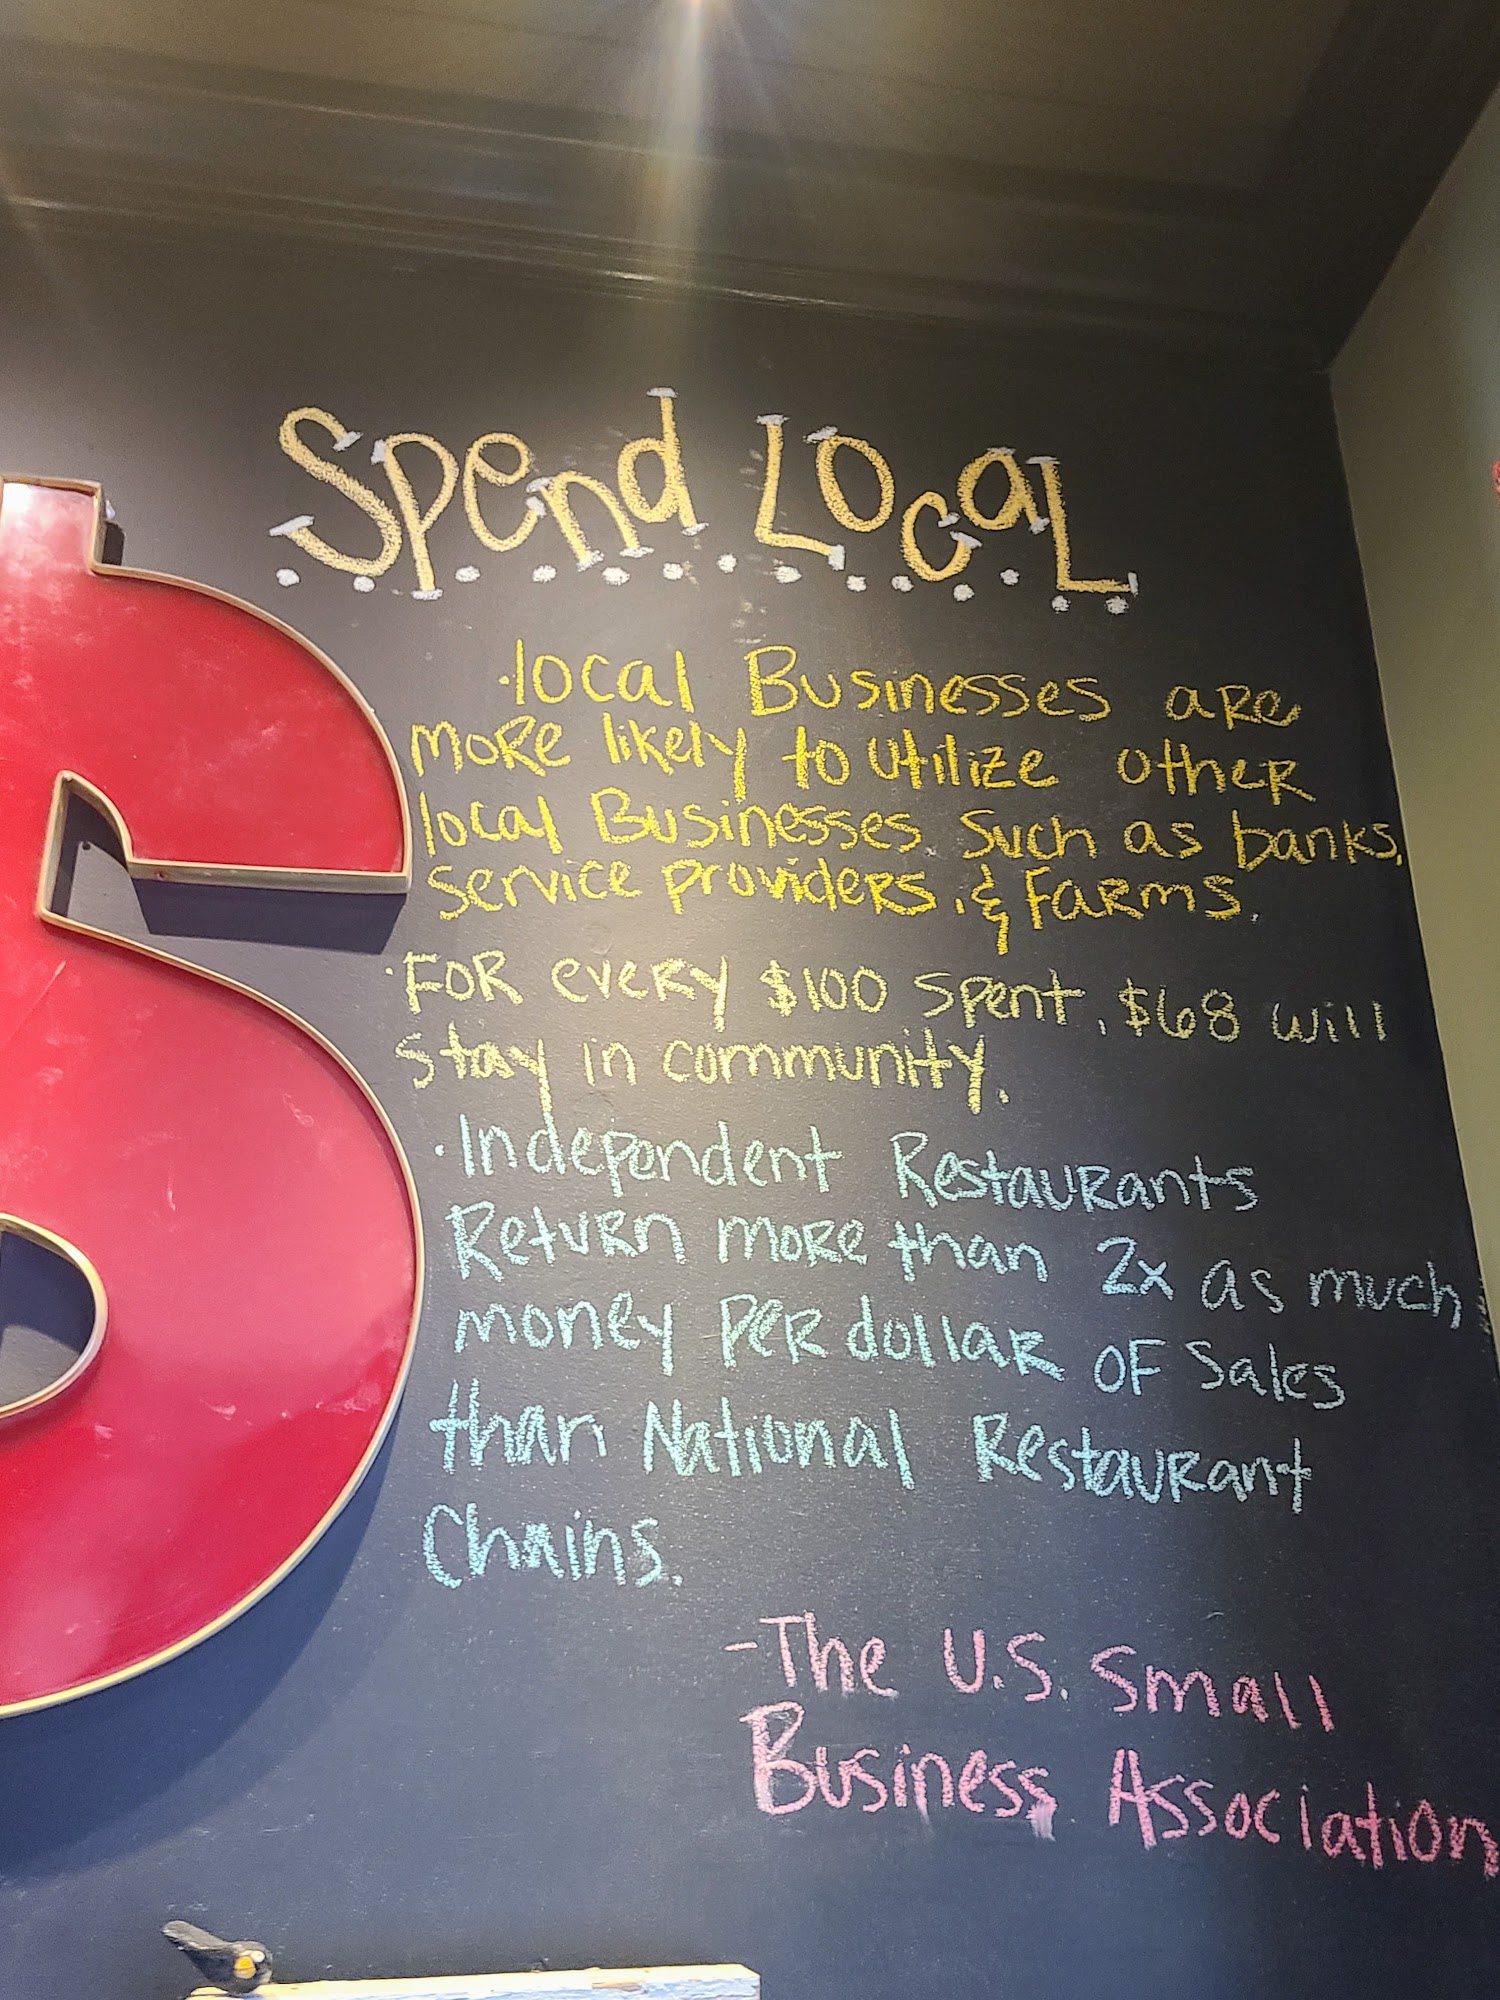 Spend Local
·local Businesses are
more likely to utilize other
local Businesses such as banks,
service providers, & Farms.
·For every $100 spent, $68 will
stay in community.
·Independent Restaurants
Return more than 2x as much
money per dollar of sales
than National Restaurant
Chains.
-The U.S. Small
Business Association